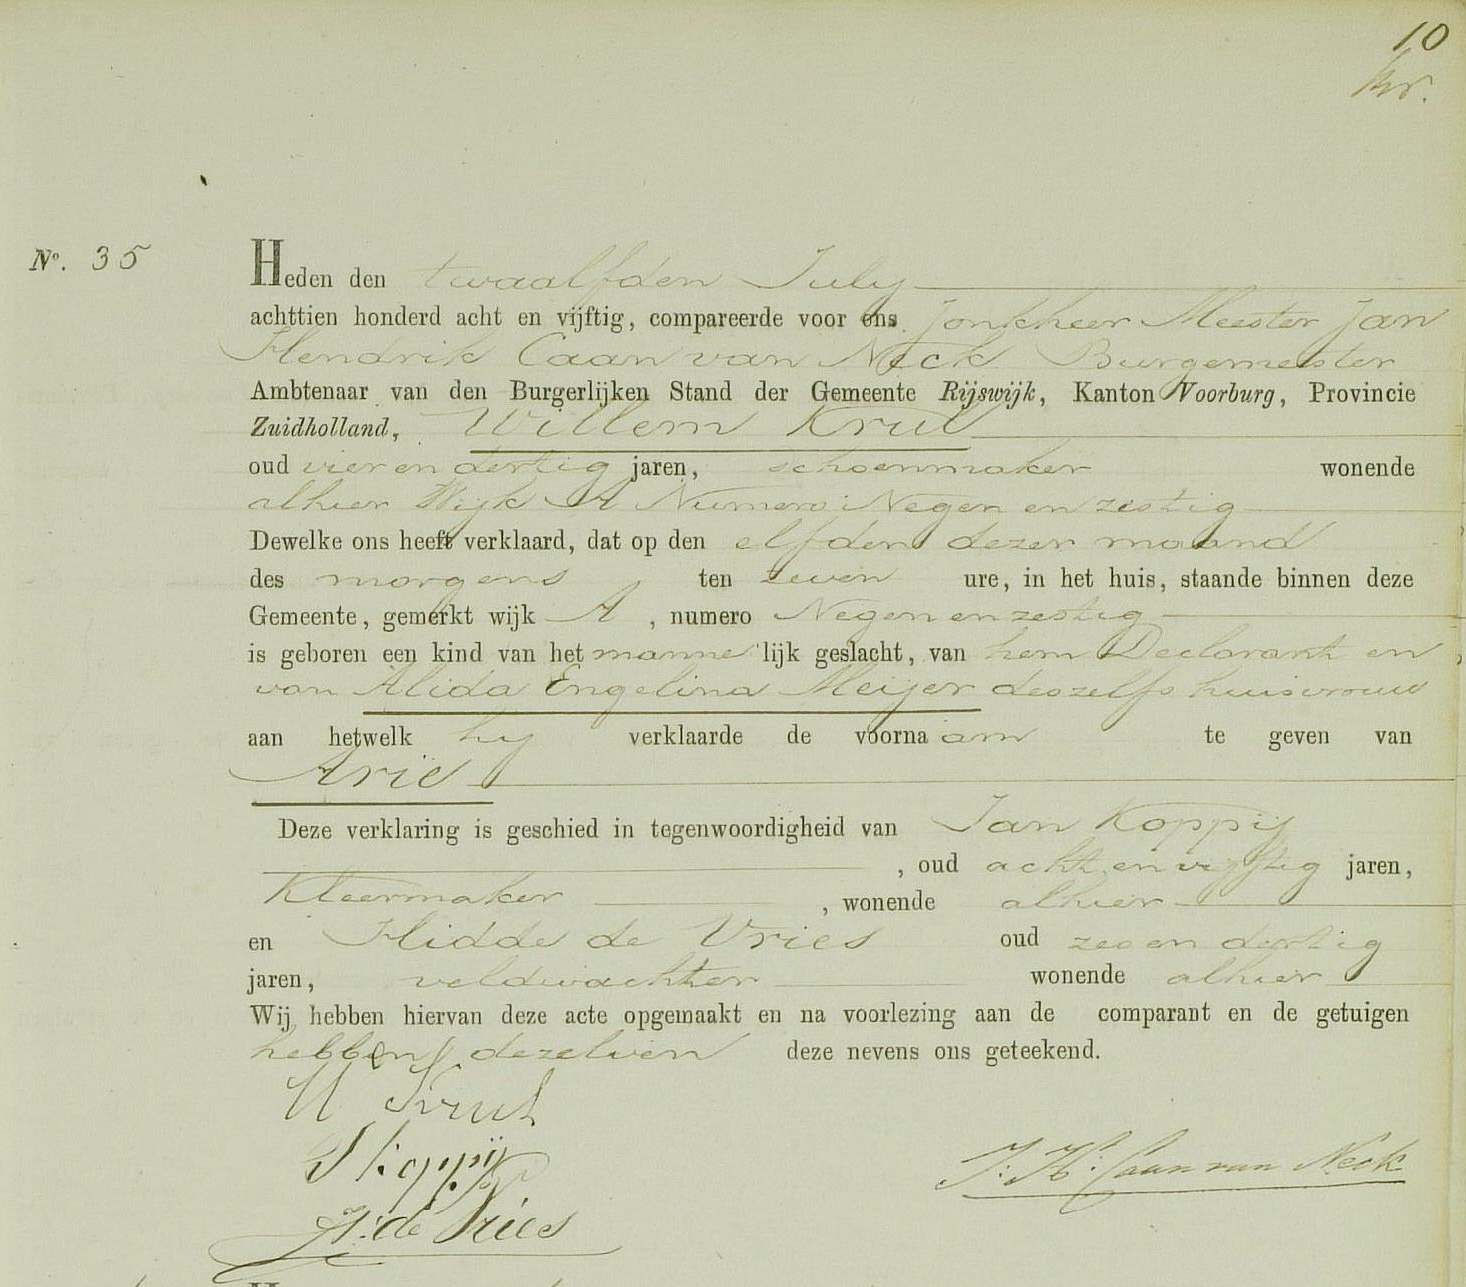 10
No. 35
Heden den twaalfden July
achttien honderd acht en vijftig, compareerde voor ons Jonkheer Meester Jan
Hendrik Caan van Neck Burgemeester
Ambtenaar van den Burgerlijken Stand der Gemeente Rijswijk, Kanton Voorburg, Provincie
Zuidholland, Willem Krul
oud vier en dertig jaren, schoenmaker wonende
alhier Wijk A Numero Negen en zestig
Dewelke ons heeft verklaard, dat op den elfden dezer maand
des morgens ten zeven ure, in het huis, staande binnen deze
Gemeente, gemerkt wijk A, numero Negen en zestig
is geboren een kind van het mannelijk geslacht, van hem Declarant en
van Alida Engelina Meijer deszelfs huisvrouw
aan hetwelk hij verklaarde de voornaam te geven van
Arie
Deze verklaring is geschied in tegenwoordigheid van Jan Koppij
, oud acht en vijftig jaren,
Kleermaker, wonende alhier
en Hidde de Vries oud zes en dertig
jaren, veldwachter wonende alhier
Wij hebben hiervan deze acte opgemaakt en na voorlezing aan de comparant en de getuigen
hebben dezelven deze nevens ons geteekend.
W Krul
J Koppij
J. H. Caan van Neck
H. de Vries